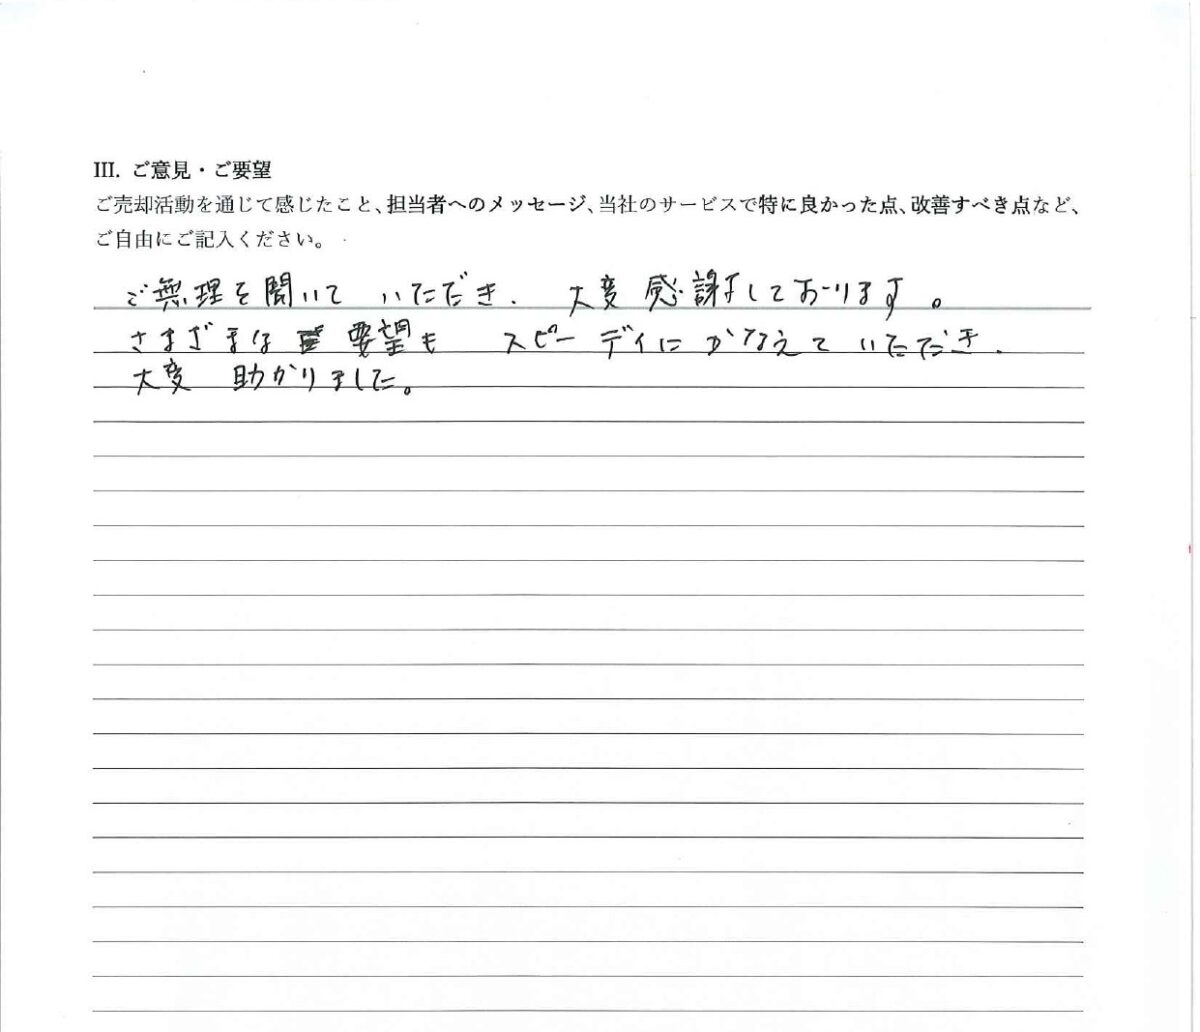 III. ご意見・ご要望
ご売却活動を通じて感じたこと、担当者へのメッセージ、当社のサービスで特に良かった点、改善すべき点など、
ご自由にご記入ください。
ご無理を聞いて いただき、 大変 感謝しております。
さまざまな 要望も スピーディにかなえていただき、
大変 助かりました。